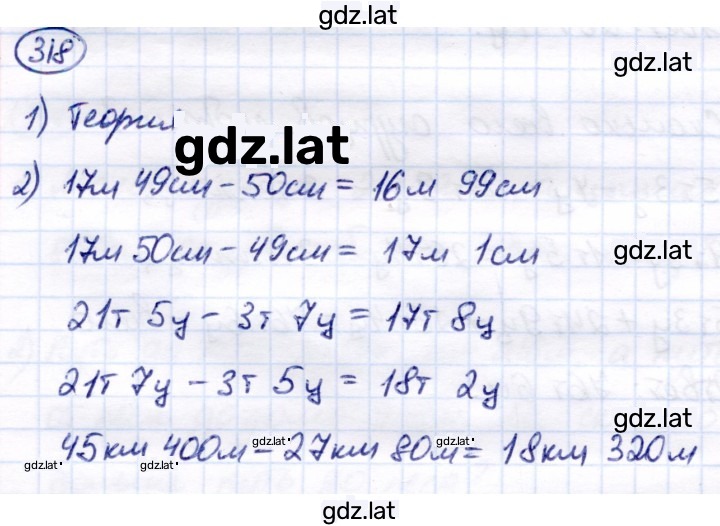 gdz.lat
318
gdz.lat
1) Теория
gdz.lat
2) 17м 49см - 50см = 16м 99см
17м 50см - 49см = 17м 1см
gdz.lat
21т 5ц - 3т 7ц = 17т 8ц
21т 7ц - 3т 5ц = 18т 2ц
gdz.lat
45км 400м - 27км 80м = 18км 320м
gdz.lat gdz.lat gdz.lat gdz.lat
gdz.lat